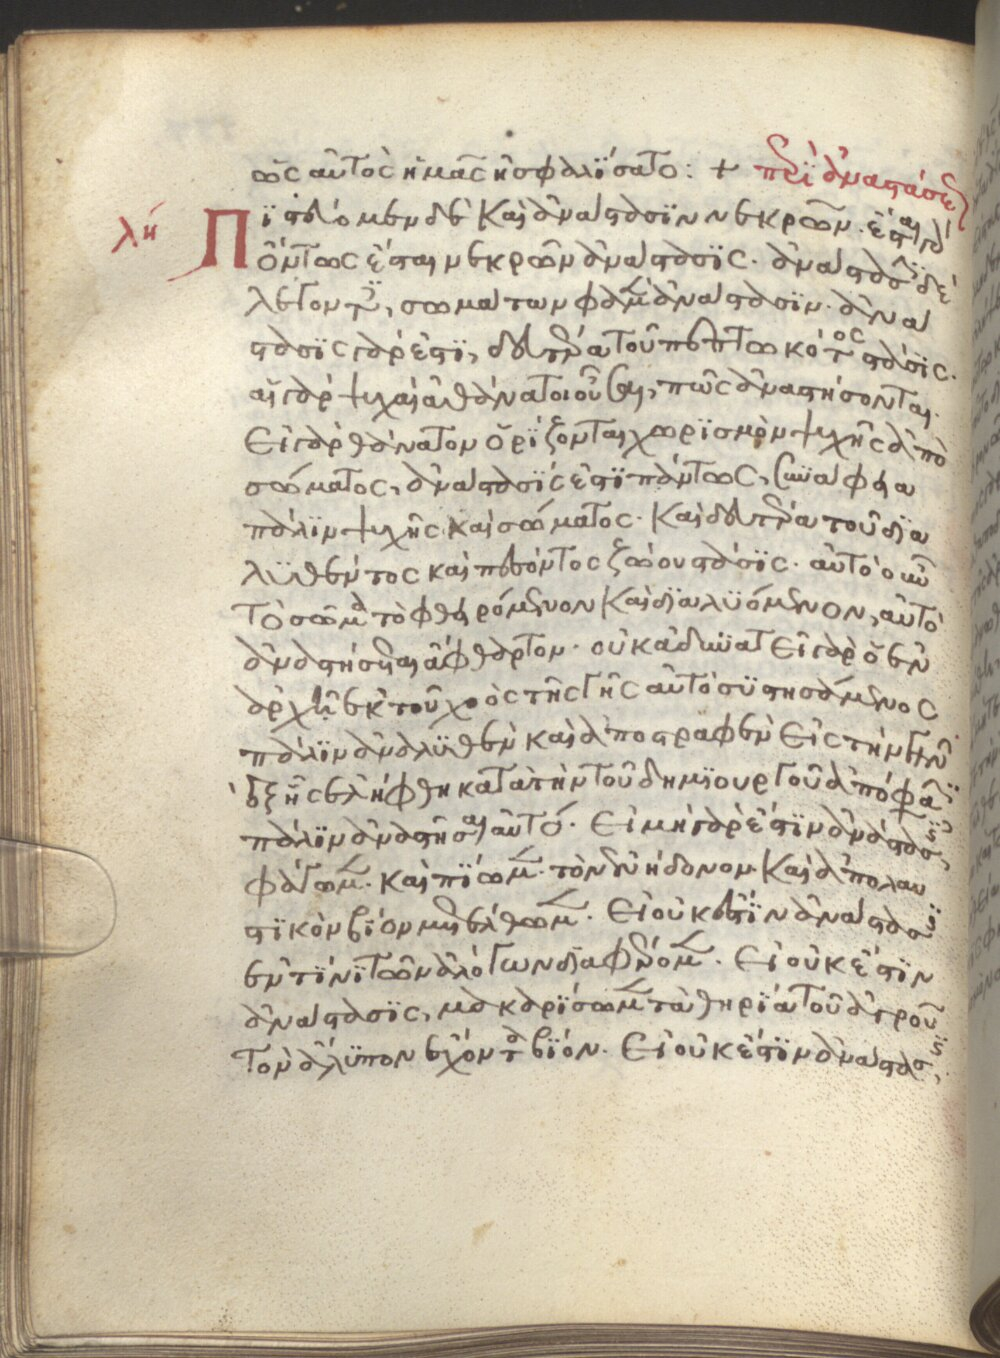 ὡς αὐτὸς ἡμᾶς ἠσφαλίσατο: + περὶ ἀναστάσεως
λη Πιστεύομεν δὲ καὶ ἀνάστασιν νεκρῶν. ἔσται γὰρ
ὄντως ἔσται νεκρῶν ἀνάστασις. ἀνάστασιν δὲ
λέγοντες, σωμάτων φαμὲν ἀνάστασιν. ἀνά
στασις γάρ ἐστι, δευτέρα τοῦ πεπτωκότος στάσις.
αἱ γὰρ ψυχαὶ ἀθάνατοι οὖσαι, πῶς ἀναστήσονται.
Εἰ γὰρ θάνατον ὁρίζονται χωρισμὸν ψυχῆς ἀπὸ
σώματος, ἀνάστασίς ἐστι πάντως, συνάφεια
πάλιν ψυχῆς καὶ σώματος. καὶ δευτέρα τοῦ δια
λυθέντος καὶ πεσόντος ζώου στάσις. αὐτὸ οὖν
τὸ σῶμα τὸ φθειρόμενον καὶ διαλυόμενον, αὐτὸ
ἀναστήσεται ἄφθαρτον. οὐκ ἀδυνατεῖ γὰρ ὁ ἐν
ἀρχῇ ἐκ τοῦ χοὸς τῆς γῆς αὐτὸ συστησάμενος
πάλιν ἀναλυθὲν καὶ ἀποστραφὲν εἰς τὴν γῆν
ἐξ ἧς ἐλήφθη κατὰ τὴν τοῦ δημιουργοῦ ἀπόφασιν
πάλιν ἀναστῆσαι αὐτό. Εἰ μὴ γάρ ἐστιν ἀνάστασις,
φάγωμεν. καὶ πίωμεν. τὸν δι' ἡδονὸν. καὶ ἀπολαυ
στικὸν βίον μετέλθωμεν. Εἰ οὐκ ἔστιν ἀνάστασις
ἐν τίνι τῶν ἀλόγων διαφέρομεν. Εἰ οὐκ ἔστιν
ἀνάστασις, μακαρίσωμεν τὰ θηρία τοῦ ἀγροῦ
τὸν ἄλυπον ἔχοντα βίον. Εἰ οὐκ ἔστιν ἀνάστασις,